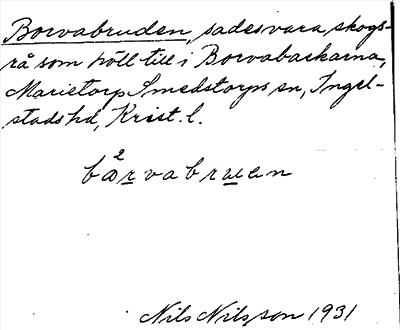 Borvabruden, sades vara skogs-
rå som höll till i Borvabackarna,
Marietorp Smedstorps sn, Ingel-
stads hd, Krist. l.
Nils Nilsson 1931